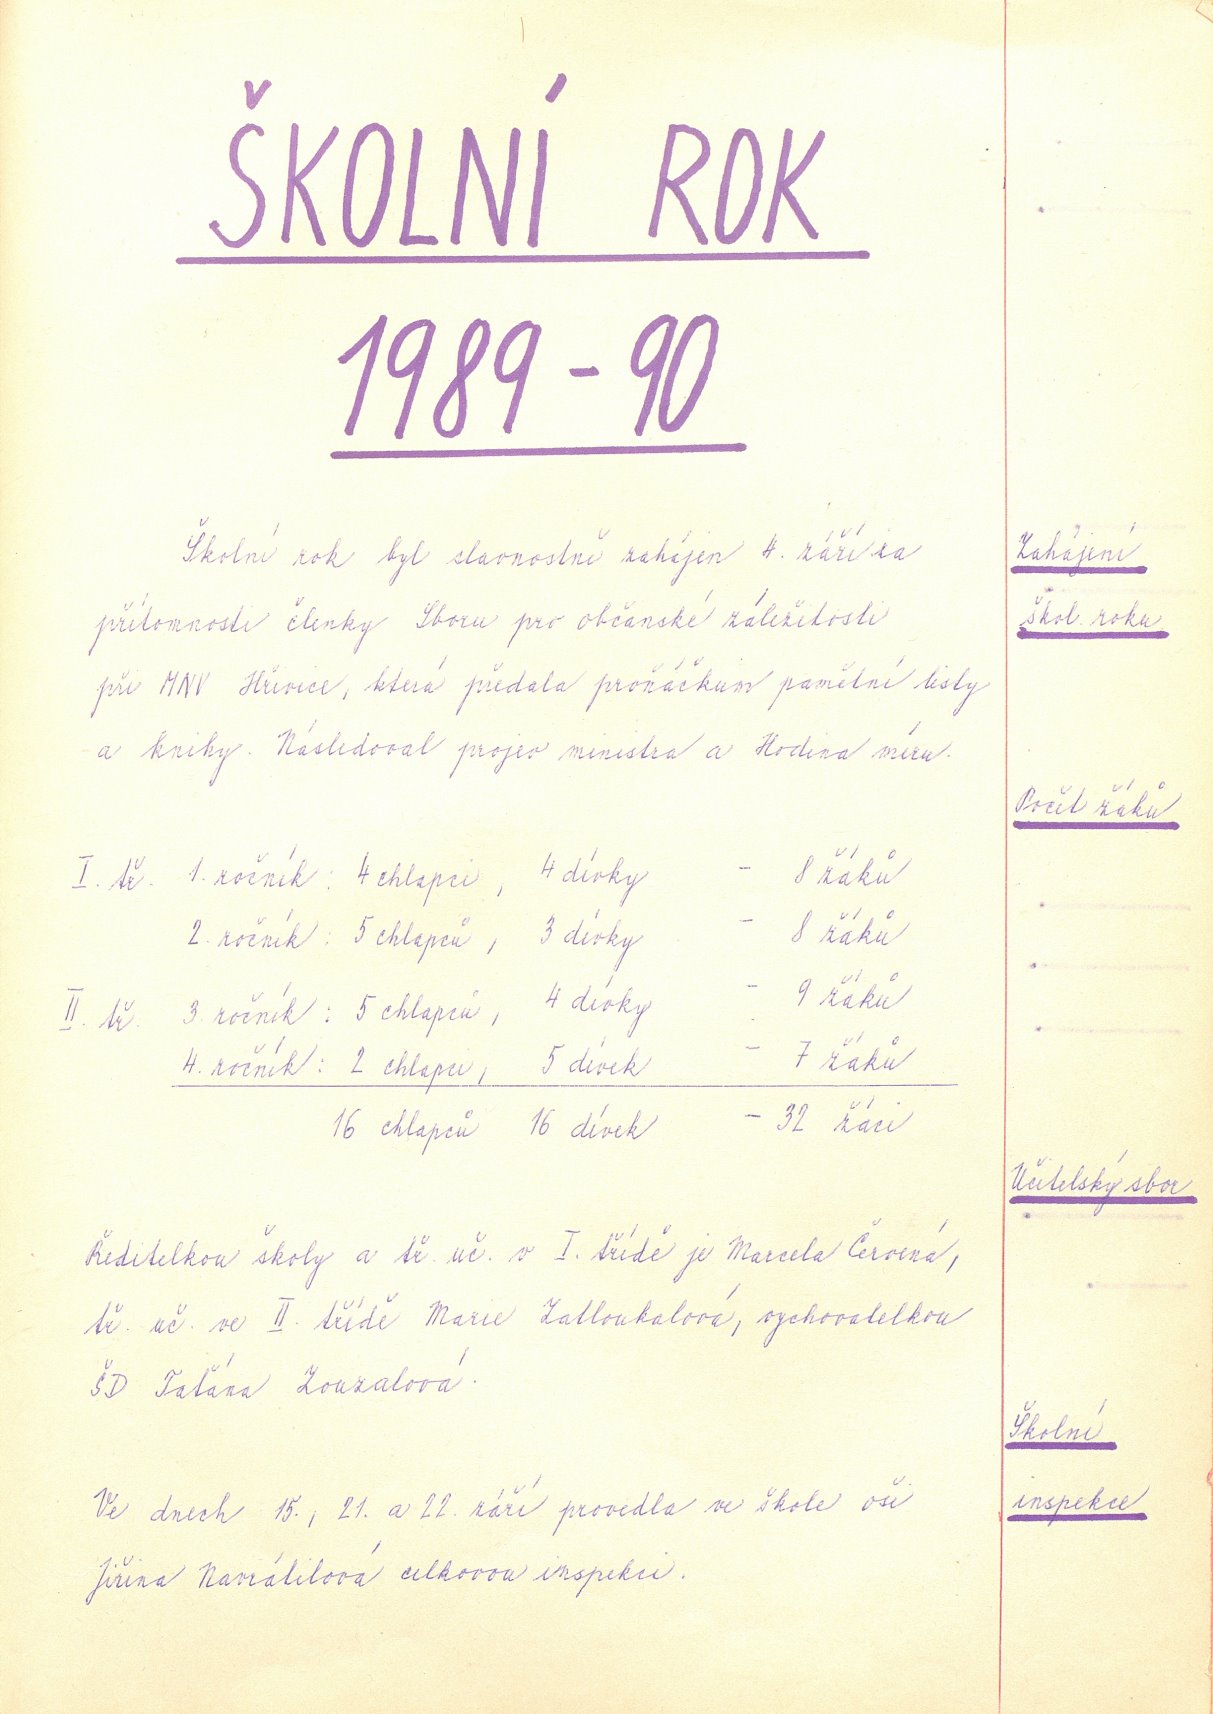 ŠKOLNÍ ROK
1989 - 90
Školní rok byl slavnostně zahájen 4. září za
Zahájení
přítomnosti členky Sboru pro občanské záležitosti
škol. roku
při MNV Hřivice, která předala prvňáčkům pamětní listy
a knihy. Následoval projev ministra a Hodina míru.
Počet žáků
I. tř. 1. ročník: 4 chlapci, 4 dívky - 8 žáků
2. ročník: 5 chlapců, 3 dívky - 8 žáků
II. tř. 3. ročník: 5 chlapců, 4 dívky - 9 žáků
4. ročník: 2 chlapci, 5 dívek - 7 žáků
16 chlapců 16 dívek - 32 žáci
Učitelský sbor
Ředitelkou školy a tř. uč. v I. třídě je Marcela Červená,
tř. uč. ve II. třídě Marie Zatloukalová, vychovatelkou
ŠD Taťána Zouzalová.
Školní
Ve dnech 15., 21. a 22. září provedla ve škole oši
inspekce
Jiřina Navrátilová celkovou inspekci.